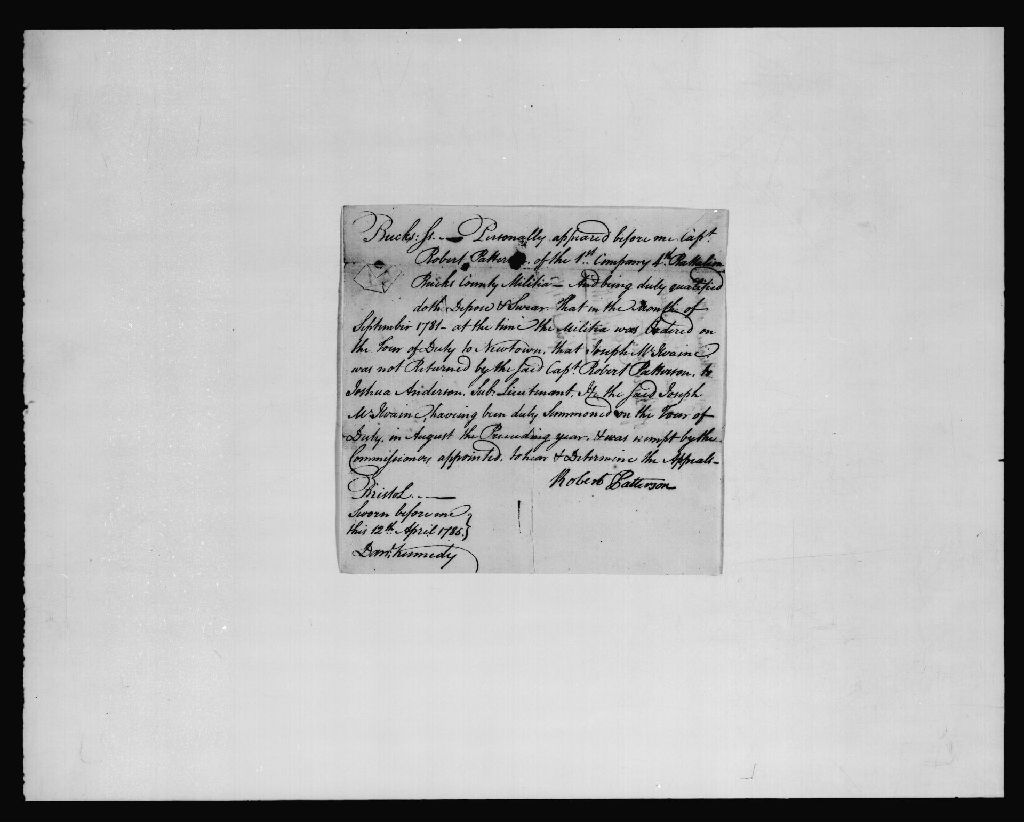 Bucks: ss. — Personally appeared before me Capt.
Robert Patterson. of the 1st Company 4th Battalion
Bucks County Militia — And being duly qualified
doth Depose & Swear That in the Month of
September 1781 - at the time the Militia was Ordered on
the Tour of Duty to Newtown, that Joseph McIlvaine
was not Returned by the said Capt. Robert Patterson, to
Joshua Anderson. Sub Lieutenant, He the said Joseph
McIlvaine, having been duly Summoned on the Tour of
Duty, in August the Preceeding year, & was exempt by the
Commissioners appointed, to hear & Determine the Appeals -
Robert Patterson
Bristol. —
Sworn before me
this 12th April 1786.
Danl. Kennedy